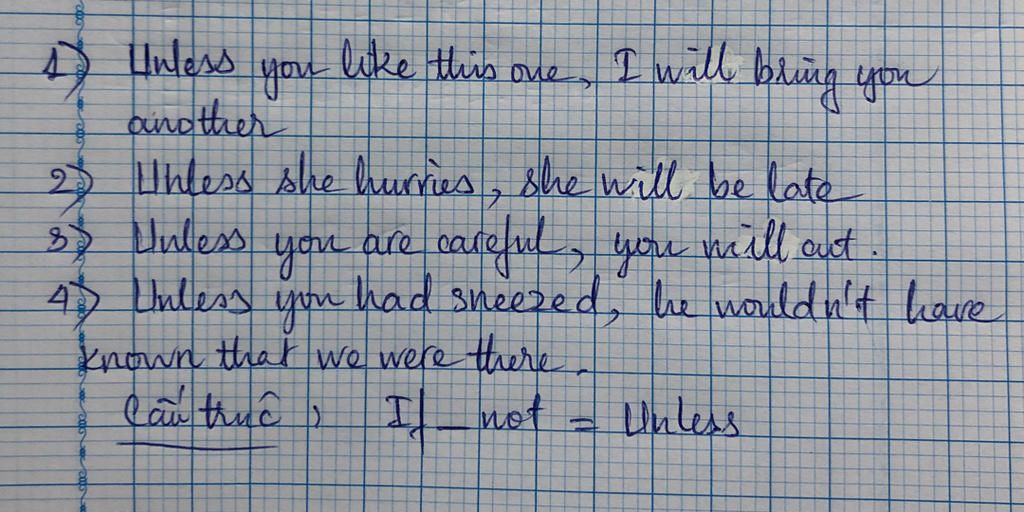 1) Unless you like this one, I will bring you
another
2) Unless she hurries, she will be late
3) Unless you are careful, you will cut.
4) Unless you had sneezed, he wouldn't have
known that we were there.
Cấu trúc, If _ not = Unless